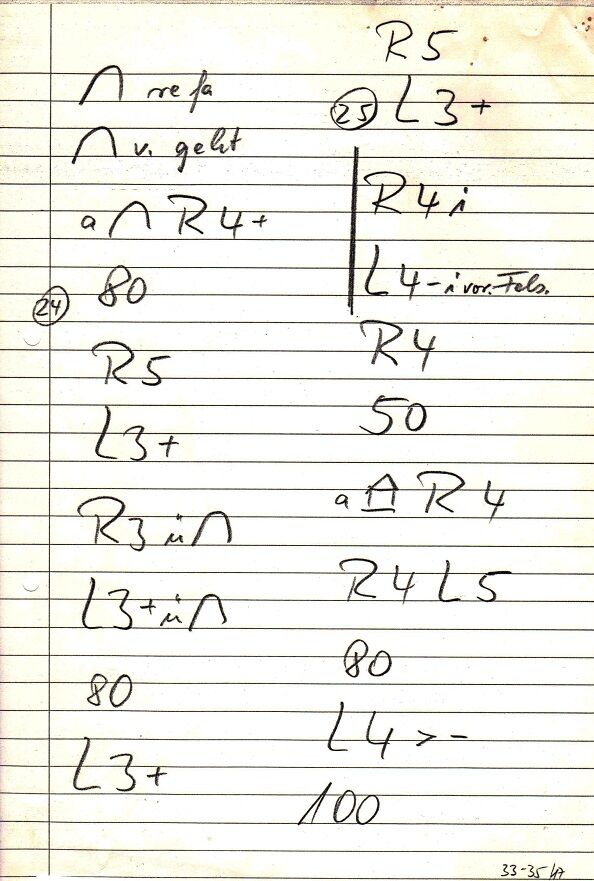 ∩ re fa
∩ v. geht
a ∩ R4+
80
24
R5
L3+
R3 ü ∩
L3+ ü ∩
80
L3+
R5
25 L3+
R4 i
L4- i vor. Fels.
R4
50
a R4
R4 L5
80
L4 > -
100
33-35